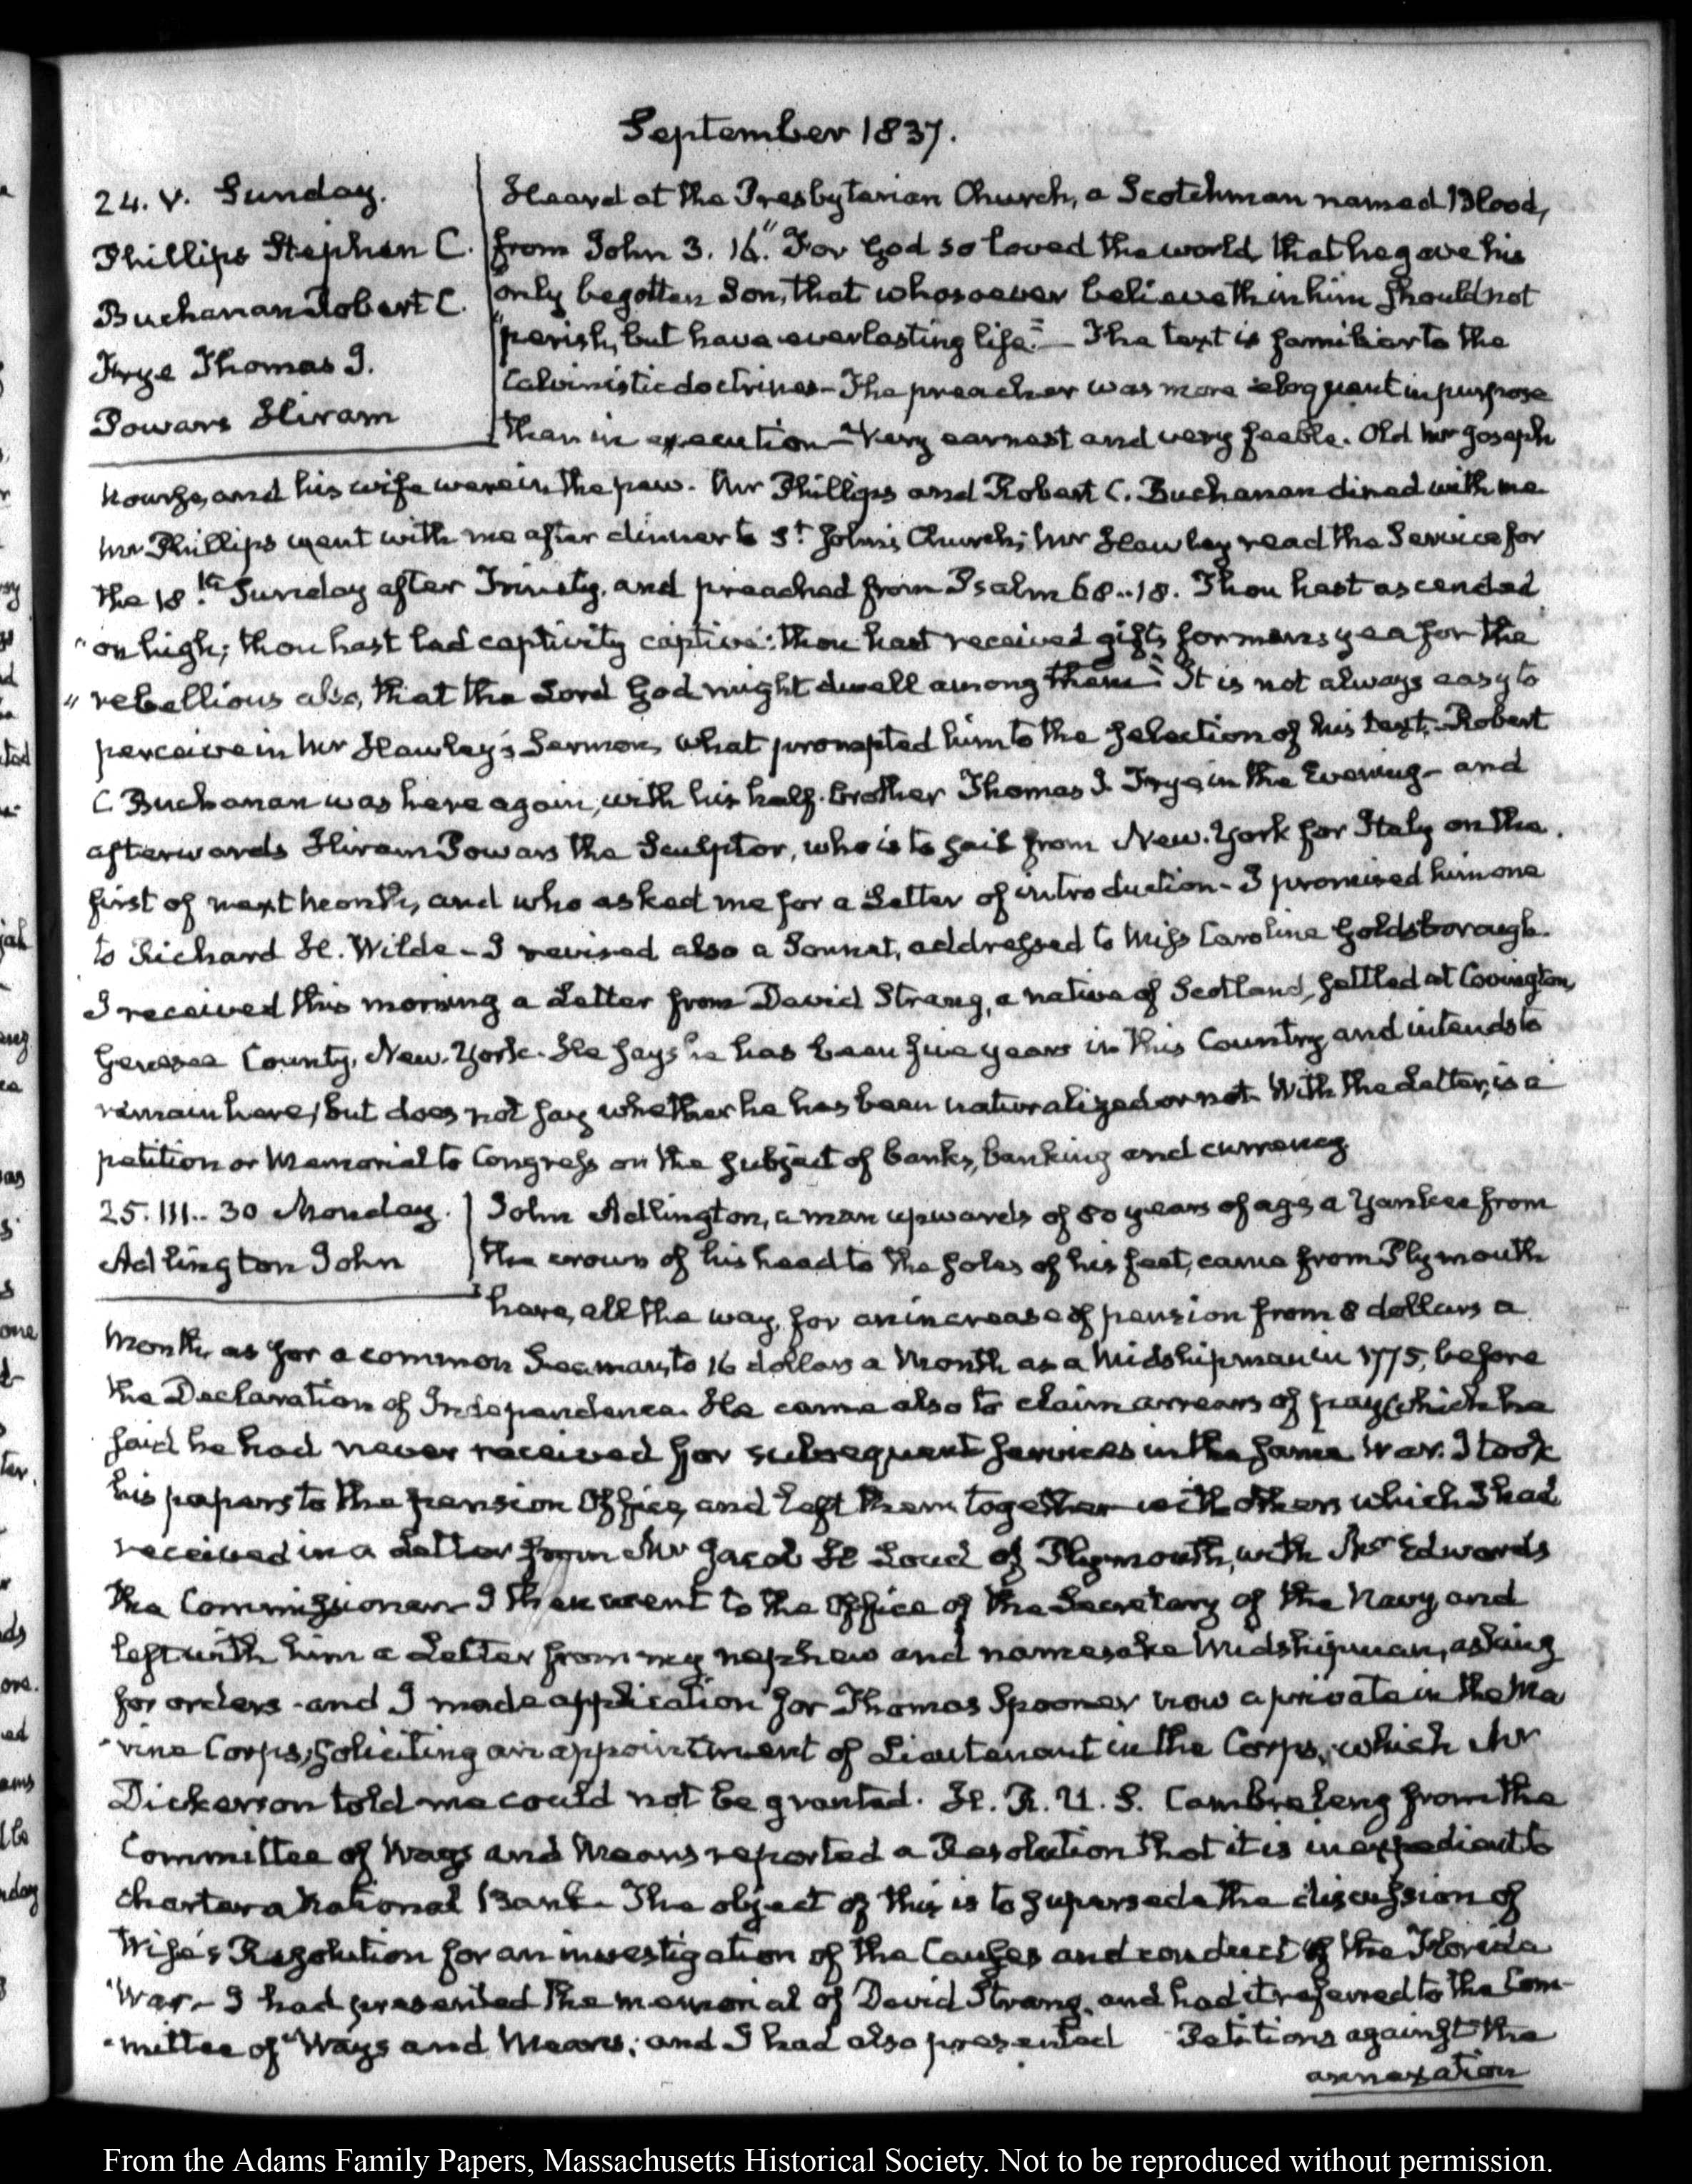 September 1837.
24. V. Sunday.
Phillips Stephen C.
Buchanan Robert C.
Frye Thomas J.
Powers Hiram
Heard at the Presbyterian Church, a Scotchman named Blood,
from John 3. 16. "For God so loved the world, that he gave his
"only begotten Son, that whosoever believeth in him should not
"perish, but have everlasting life." — The text is familiar to the
Calvinistic doctrines — The preacher was more eloquent in purpose
than in execution — Very earnest and very feeble. Old Mr Joseph
Nourse, and his wife were in the pew. Mr Phillips and Robert C. Buchanan dined with me
Mr Phillips went with me after dinner to St. John's Church; Mr Hawley read the Service for
the 18th Sunday after Trinity, and preached from Psalm 68..18. Thou hast ascended
"on high; thou hast led captivity captive: thou hast received gifts for men: yea for the
"rebellious also, that the Lord God might dwell among them." It is not always easy to
perceive in Mr Hawley's Sermons, what prompted him to the selection of his text. Robert
C Buchanan was here again, with his half-brother Thomas J. Frye in the Evening — and
afterwards Hiram Powers the Sculptor, who is to sail from New-York for Italy on the
first of next month, and who asked me for a Letter of introduction — I promised him one
to Richard H. Wilde — I revised also a Sonnet, addressed to Miss Caroline Goldsborough.
I received this morning a Letter from David Strang, a native of Scotland, settled at Covington,
Genesee County, New-York. He says he has been five years in this Country and intends to
remain here, but does not say whether he has been naturalized or not. With the Letter, is a
petition or Memorial to Congress on the subject of banks, banking and currency
25. III.. 30 Monday.
Adlington John
John Adlington, a man upwards of 80 years of age, a Yankee from
the crown of his head to the soles of his feet, came from Plymouth
here, all the way, for an increase of pension from 8 dollars a
Month, as for a common Seaman, to 16 dollars a Month as a Midshipman in 1775, before
the Declaration of Independence. He came also to claim arrears of pay which he
said he had never received for subsequent services in the same War. I took
his papers to the pension Office, and left them together with others which I had
received in a Letter from Mr Jacob H Loud of Plymouth, with Mr Edwards
the Commissioner — I then went to the Office of the Secretary of the Navy, and
left with him a Letter from my nephew and namesake Midshipman, asking
for orders — and I made application for Thomas Spooner now a private in the Ma
-rine Corps, soliciting an appointment of Lieutenant in the Corps, which Mr
Dickerson told me could not be granted. H. R. U. S. Cambreleng from the
Committee of Ways and Means reported a Resolution that it is inexpedient to
charter a National Bank — The object of this is to supersede the discussion of
Wise's Resolution for an investigation of the Causes and conduct of the Florida
War — I had presented the memorial of David Strang, and had it referred to the Com-
-mittee of Ways and Means; and I had also presented Petitions against the
annexation
From the Adams Family Papers, Massachusetts Historical Society. Not to be reproduced without permission.